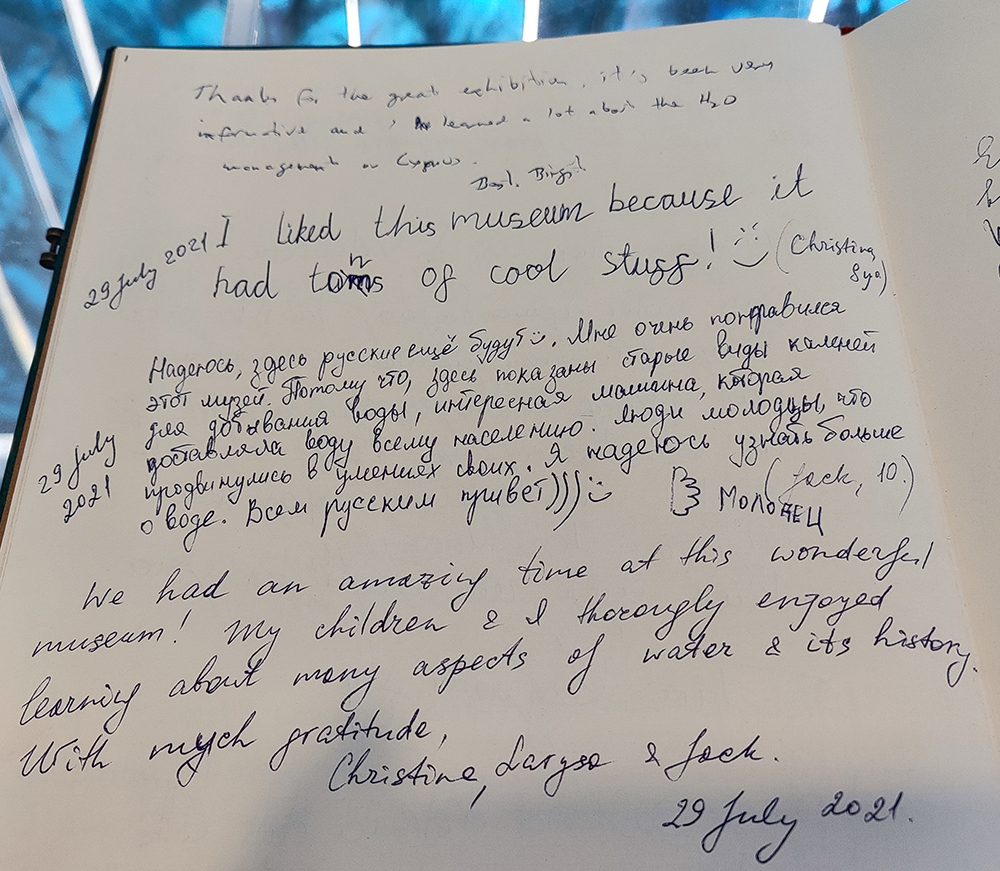 Thanks for the great exhibition, it's been very
informative and I learned a lot about the H2O
management on Cyprus.
Best, Birgit
29 July 2021 I liked this museum because it
had tons of cool stuff! (Christina,
8yo)
Надеюсь, здесь русские ещё будут. Мне очень понравился
этот музей. Потому что, здесь показаны старые виды
для добывания воды, интересная машина, которая
доставляла воду всему населению. Люди молодцы, что
29 July продвинулись в умениях своих. Я надеюсь узнать больше
2021 о воде. Всем русским привет))) (Jack, 10.)
МОЛОДЕЦ
We had an amazing time at this wonderful
museum! My children & I thorougly enjoyed
learning about many aspects of water & its history.
With mych gratitude,
Christina, Larysa & Jack.
29 July 2021.